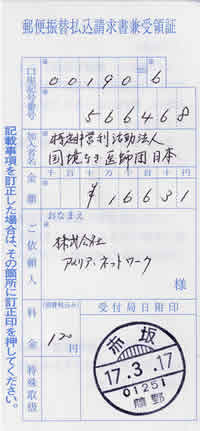 郵便振替払込請求書兼受領証
口座記号番号
00190 6
566468
加入者名
特定非営利活動法人
国境なき医師団日本
金額
千 百 十 万 千 百 十 円
¥16631
ご依頼人
おなまえ
株式会社
アメリア・ネットワーク
様
料金
(消費税込み)
120円
特殊取扱
受付局日附印
赤坂
17.3.17
01251
記載事項を訂正した場合は、その箇所に訂正印を押してください。